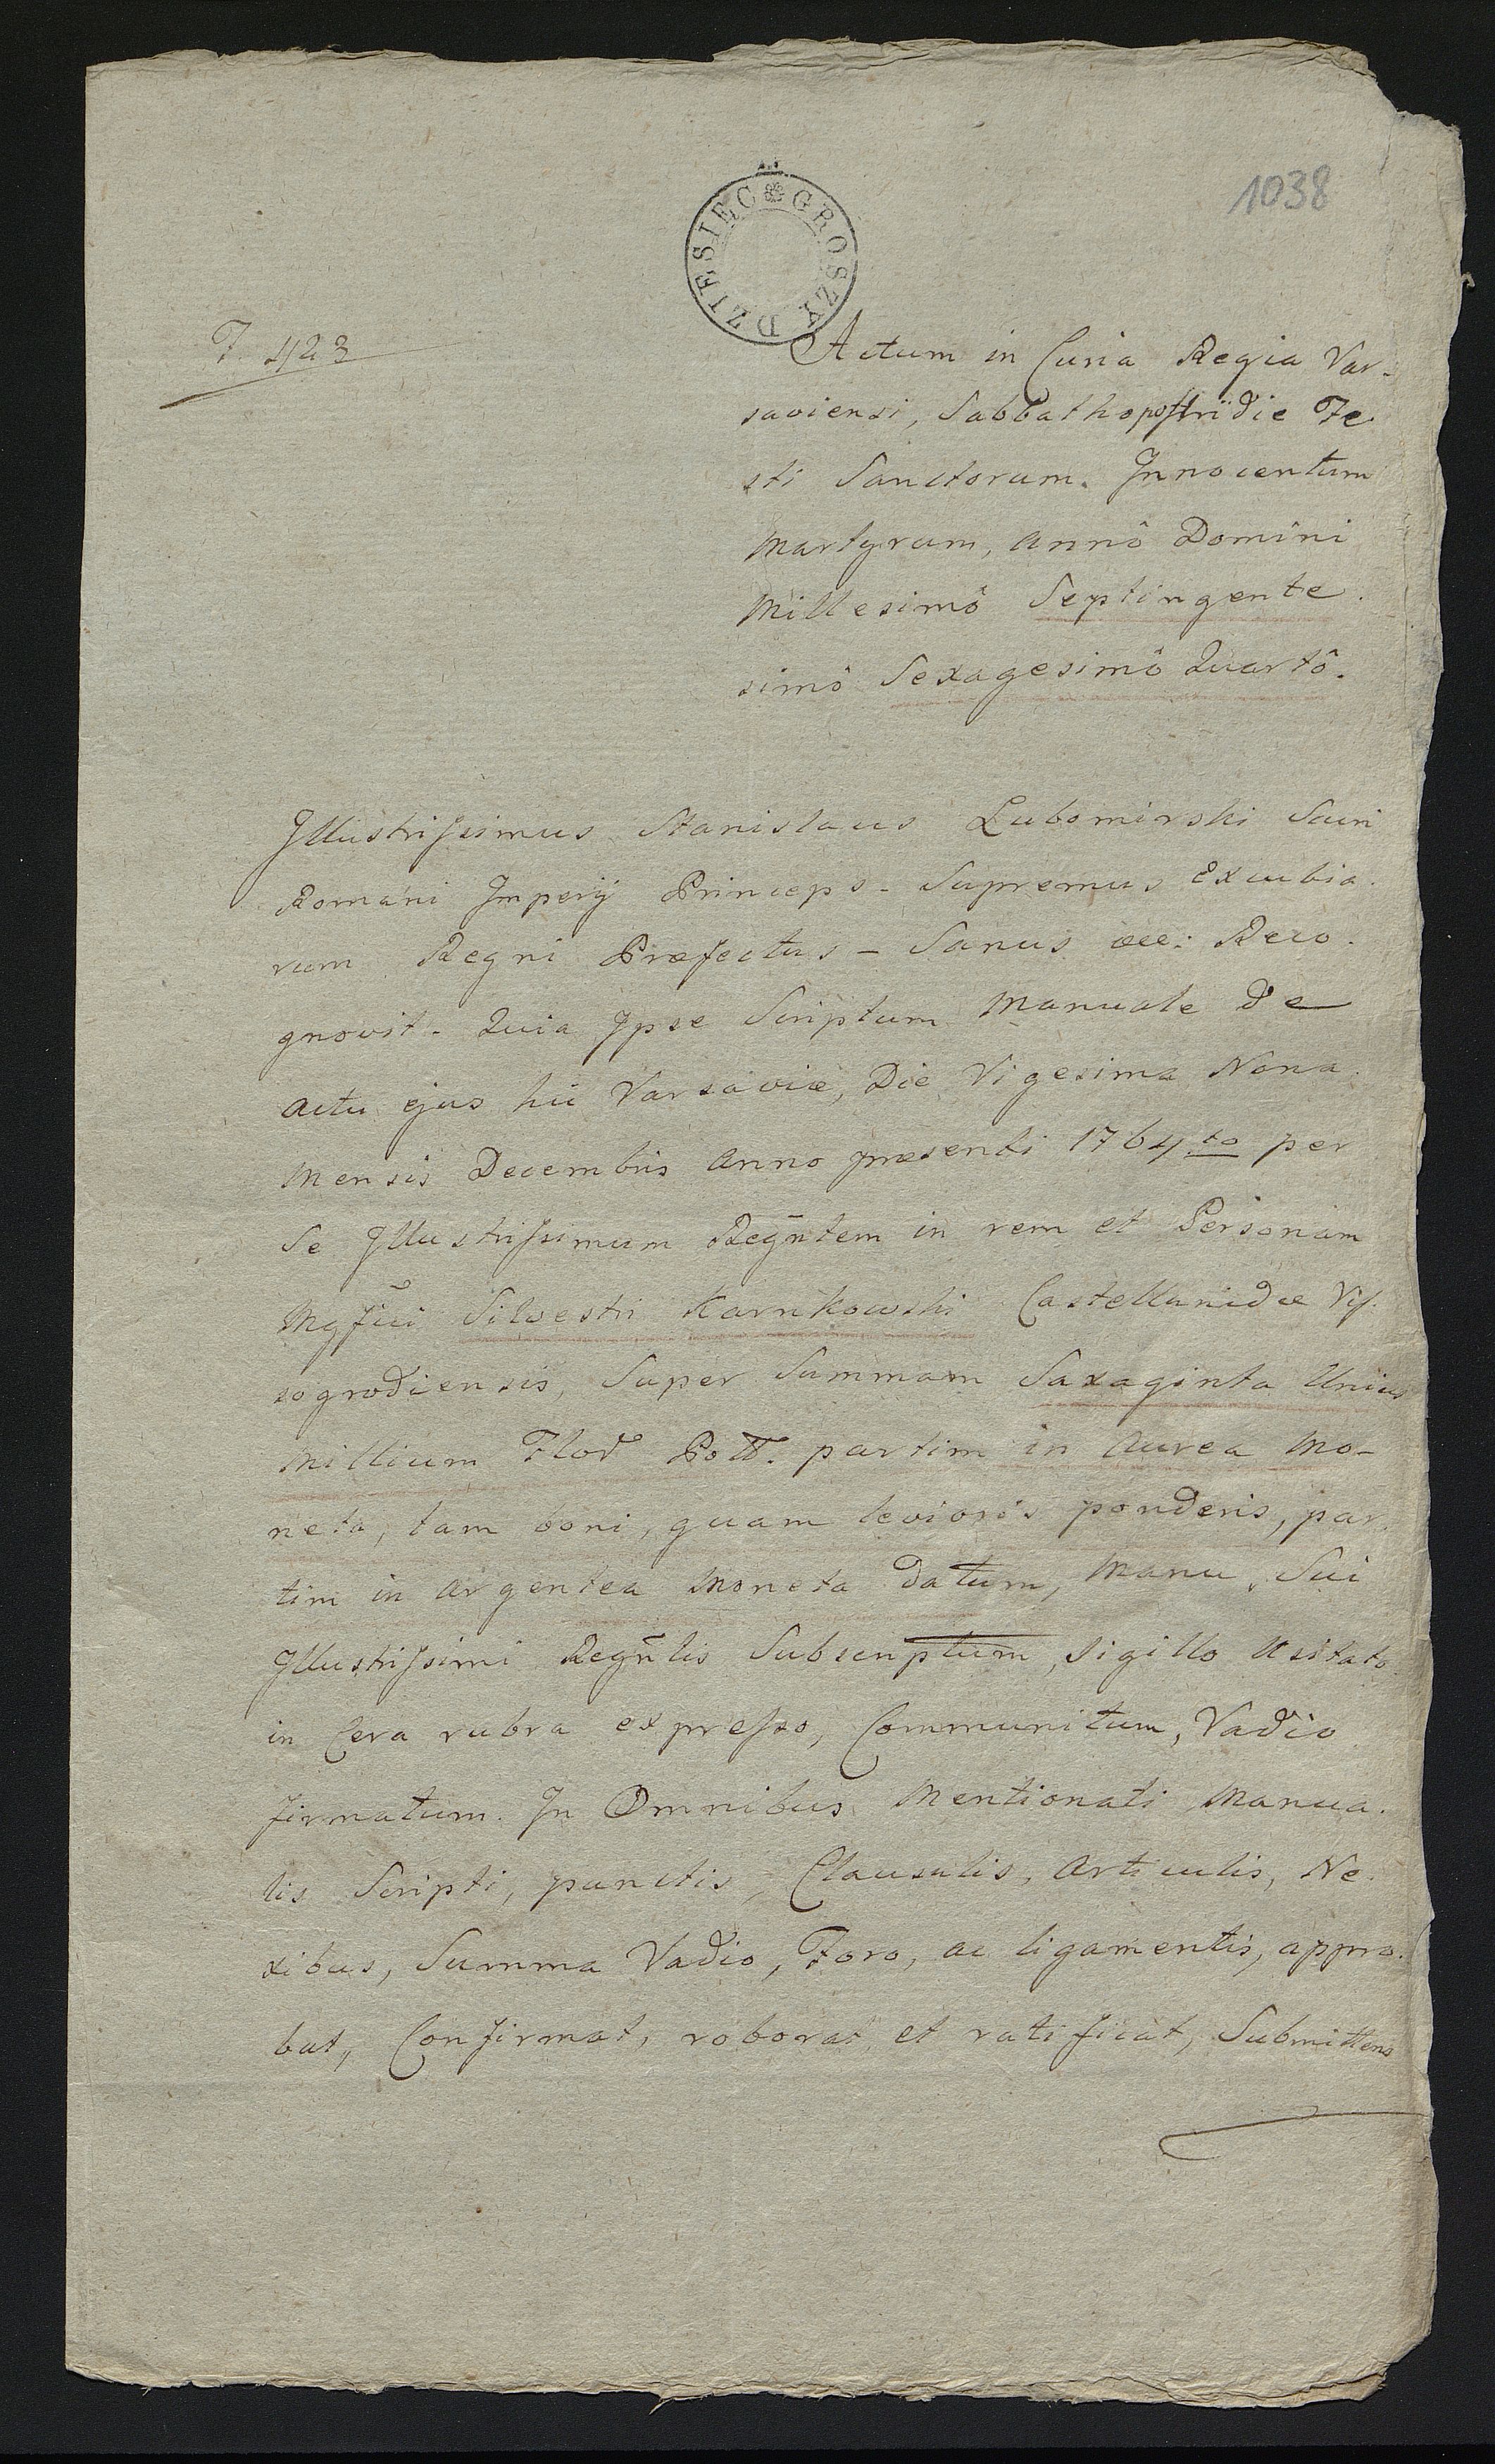 1038
DZIESIEC GROSZY
F. 423
Actum in Curia Regia Var-
saviensi, Sabbatho postridie Fe
sti Sanctorum. Innocentum
Martyrum, Annô Domini
Millesimô Septingente.
simô Sexagesimô Quartô.
Illustrissimus Stanislaus Lubomirski Sacri
Romani Imperij Princeps - Supremus Excubia.
rum Regni Præfectus - Sanus &ce: Reco.
gnovit. Quia Ipse Scriptum Manuale de
actu ejus hic Varsaviæ, Die Vigesima Nona.
Mensis Decembris Anno præsenti 1764to per
Se Illustrissimum Regn̄tem in rem et Personam
Mgfici Silvestri Karnkowski Castellanidæ Vis.
sogrodiensis, Super Summam Saxaginta Unius
Millium Flor Poll. partim in Aurea Mo-
neta, tam boni, quam levioris ponderis, par.
tim in argentea Moneta datum, Manu, Sui
Illustrissimi Regn̄tis Subscriptum, Sigillo usitato
in Cera rubra expresso, Communitum, Vadio
firmatum. In Omnibus Mentionati Manua.
lis Scripti, punctis, Clausulis, Articulis, Ne.
xibus, Summa Vadio, Foro, ac ligamentis, appro.
bat, Confirmat, roborat et ratificat, Submittens